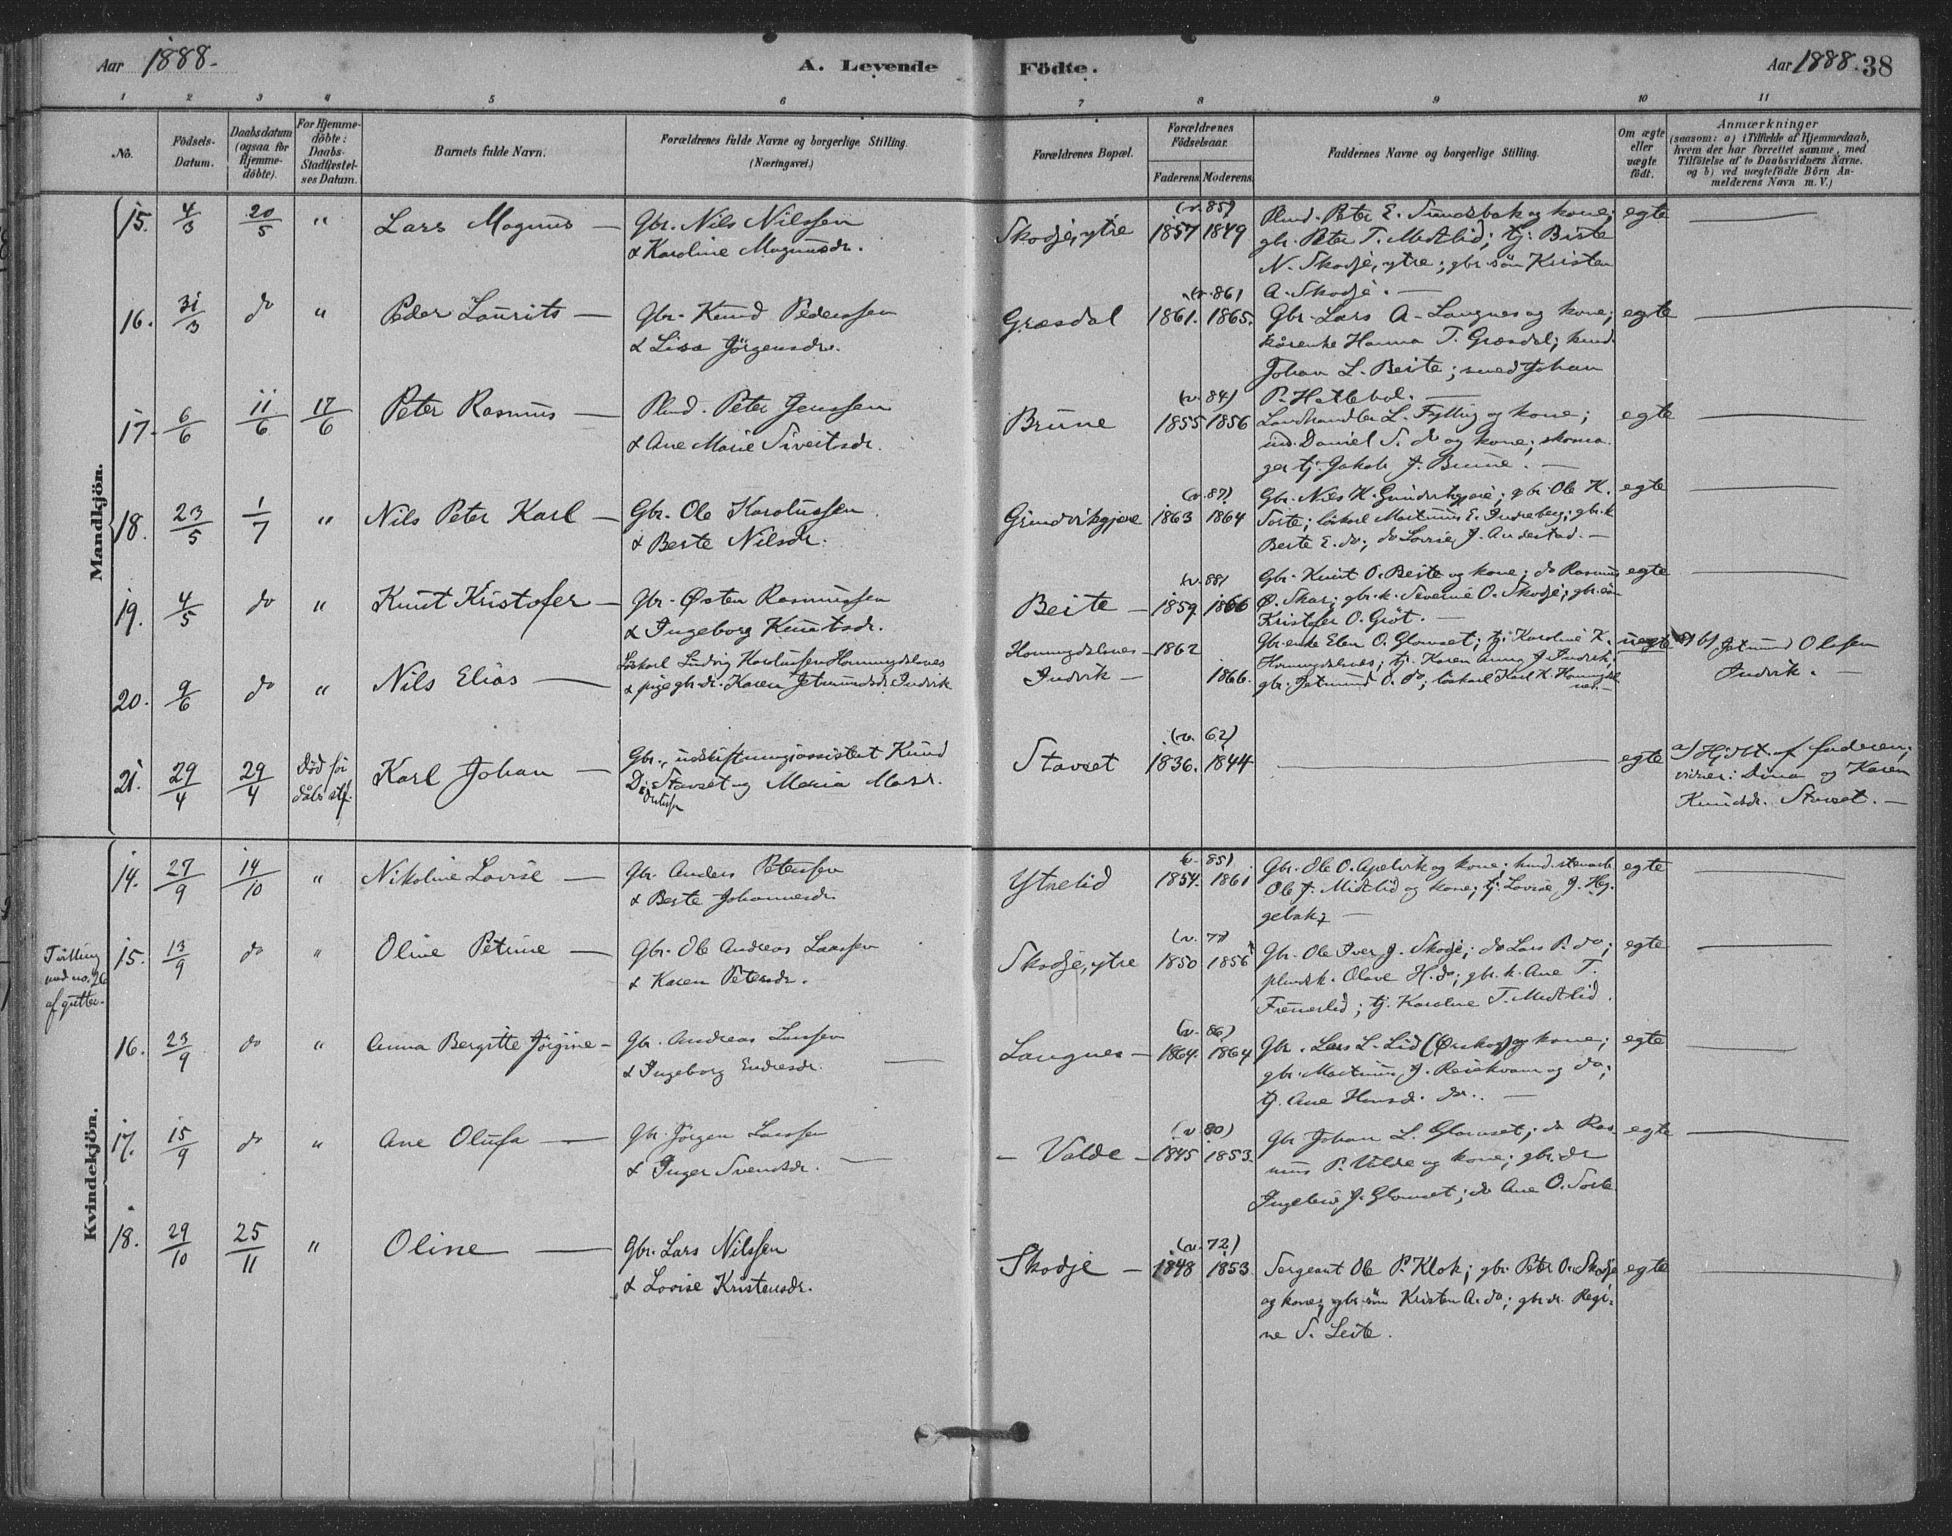 Aar 1888.
A. Levende
Födte.
Aar 1888.
38
1 2 3 4 5 6 7 8 9 10 11
No.
Födsels-
Datum.
Daabsdatum
(ogsaa for
Hjemme-
döbte).
For Hjemme-
döbte:
Daabs-
Stadfæstel-
ses Datum.
Barnets fulde Navn.
Forældrenes fulde Navne og borgerlige Stilling.
(Næringsvei.)
Forældrenes Bopæl.
Forældrenes
Födselsaar.
Faderens. Moderens.
Faddernes Navne og borgerlige Stilling.
Om ægte
eller
uægte
födt.
Anmærkninger
(saasom: a) i Tilfælde af Hjemmedaab,
hvem der har forrettet samme, med
Tilföielse af to Daabsvidners Navne.
og b) ved uægtefödte Börn An-
melderens Navn m. V.)
Mandkjön.
15. 4/3 20/5 " Lars Magnus — Gbr. Nils Nilssen
& Karoline Magnusdr.
Skodje, ytre
(v. 85)
1857 1849
Plmd. Peter E. Sundsbak og kone;
gbr. Peter T. Medtlid; tj. Berte
N. Skodje, ytre; gbr. sön Kristen
A. Skodje. —
egte
16. 31/3 do " Peder Laurits — Gbr. Knud Pedersen
& Lisa Jörgensdr.
Græsdal
(v. 86)
1861. 1865.
Gbr. Lars A. Langnes og kone;
kårenke Hanna T. Græsdal; husmd.
Johan L. Beite; smed Johan
P. Hatlebol. —
egte
17. 6/6 11/6 17/6 Peter Rasmus — Plmd. Peter Jenssen
& Ane Marie Siveitsdr.
Brune
(v. 84)
1855 1856
Landhandler L. Fylling og kone;
ind. Daniel S. do og kone; skoma-
ger tj. Jakob J. Brune. —
egte
18. 23/5 1/7 " Nils Peter Karl — Gbr. Ole Karolussen
& Berte Nilsdr.
Grindvikgjere
(v. 87)
1863 1864
Gbr. Nils K. ; gbr. Ole K.
Sorte; löskarl Martinus E. Indreberg; gbr. k.
Berte E. do; do Lovise J. Andestad. —
egte
19. 4/5 do " Knut Kristofer — Gbr. Østen Rasmussen
& Ingeborg Knutsdr.
Beite —
(v. 88)
1859 1866
Gbr. Knut O. Beite og kone; do Rasmus
Ø. Skar; gbr. k. Severine O. Skodje; gbr. sön
Kristofer O. Gröt. —
egte
20. 9/6 do " Nils Elias — Löskarl Ludvig Karolussen Honningdalsnes
& pige gbr. dr. Karen Jetmundsdr. Indvik
Honningdalsnes — 1862
Indvik — 1866.
Gbr. enke Elen O. Glomset; tj. Karoline K.
Honningdalsnes; tj. Karen Anna J. Indvik;
gbr. Jetmund O. do; löskarl Karl K. Honningdals-
nes. —
uegte
b) Jetmund Olssen
Indvik. —
21. 29/4 29/4 Död för
dåbs stf. Karl Johan — Gbr., udskiftningsassistent Knud
D. Stavset og Maria Masdr.
Stavset
(v. 62)
1836. 1844
egte
a) Hjdbt. af faderen;
vidner: Dina og Karen
Knudsdr. Stavset. —
Kvindekjön.
14. 27/9 14/10 " Nikoline Lovise — Gbr. Anders Petersen
& Berte Johannesdr.
Ytrelid
(v. 85)
1854. 1861
Gbr. Ole O. Apelvik og kone; husmd. stenarb.
Ole J. Midtlid og kone; tj. Lovise J. Heg-
gebak —
egte
Tvilling
med no. 26
af gutter.
15. 13/9 do " Oline Petrine — Gbr. Ole Andreas Larssen
& Karen Petersdr.
Skodje, ytre
(v. 77)
1850 1856
Gbr. Ole Iver J. Skodje; do Lars P. do;
plmdsk. Olave H. do; gbr. k. Ane T.
; tj. Karoline T. Medtlid.
egte
16. 23/9 do " Anna Bergitte Jörgine — Gbr. Andreas Larssen
& Ingeborg Endresdr. —
Langnes —
(v. 86)
1864. 1864
Gbr. Lars L. Lid (Ørskog) og kone;
gbr. Martinus J. Reiekvam og do;
tj. Ane Hansd. do. —
egte
17. 15/9 do " Ane Olufa — Gbr. Jörgen Larssen
& Inger Svendsdr. —
— Valde —
(v. 80)
1845 1853.
Gbr. Johan L. Glomset; do Ras-
mus P. Valde og kone; gbr. dr.
J. Glomset; do Ane O. Sorte.
egte
18. 29/10 25/11 " Oline — Gbr. Lars Nilssen
& Lovise Kristensdr.
Skodje —
(v. 72)
1848 1853.
Sergeant Ole P. Klok; gbr. Peter O. Skodje
og kone; gbr. sön Kristen A. do; gbr. dr. Regi-
ne S. Leite.
egte